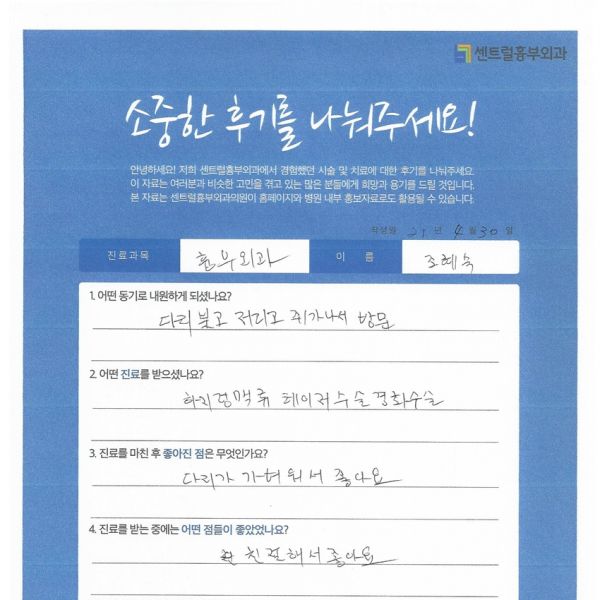 센트럴흉부외과
소중한 후기를 나눠주세요!
안녕하세요! 저희 센트럴흉부외과에서 경험했던 시술 및 치료에 대한 후기를 나눠주세요.
이 자료는 여러분과 비슷한 고민을 겪고 있는 많은 분들에게 희망과 용기를 드릴 것입니다.
본 자료는 센트럴흉부외과의원이 홈페이지와 병원 내부 홍보자료로도 활용될 수 있습니다.
작성일 21년 4월 30일
진료과목 흉부외과 이 름 조혜숙
1. 어떤 동기로 내원하게 되셨나요?
다리 붓고 저리고 쥐가나서 방문
2. 어떤 진료를 받으셨나요?
하지정맥류 레이저수술 경화수술
3. 진료를 마친 후 좋아진 점은 무엇인가요?
다리가 가벼워서 좋아요
4. 진료를 받는 중에는 어떤 점들이 좋았었나요?
친절해서 좋아요